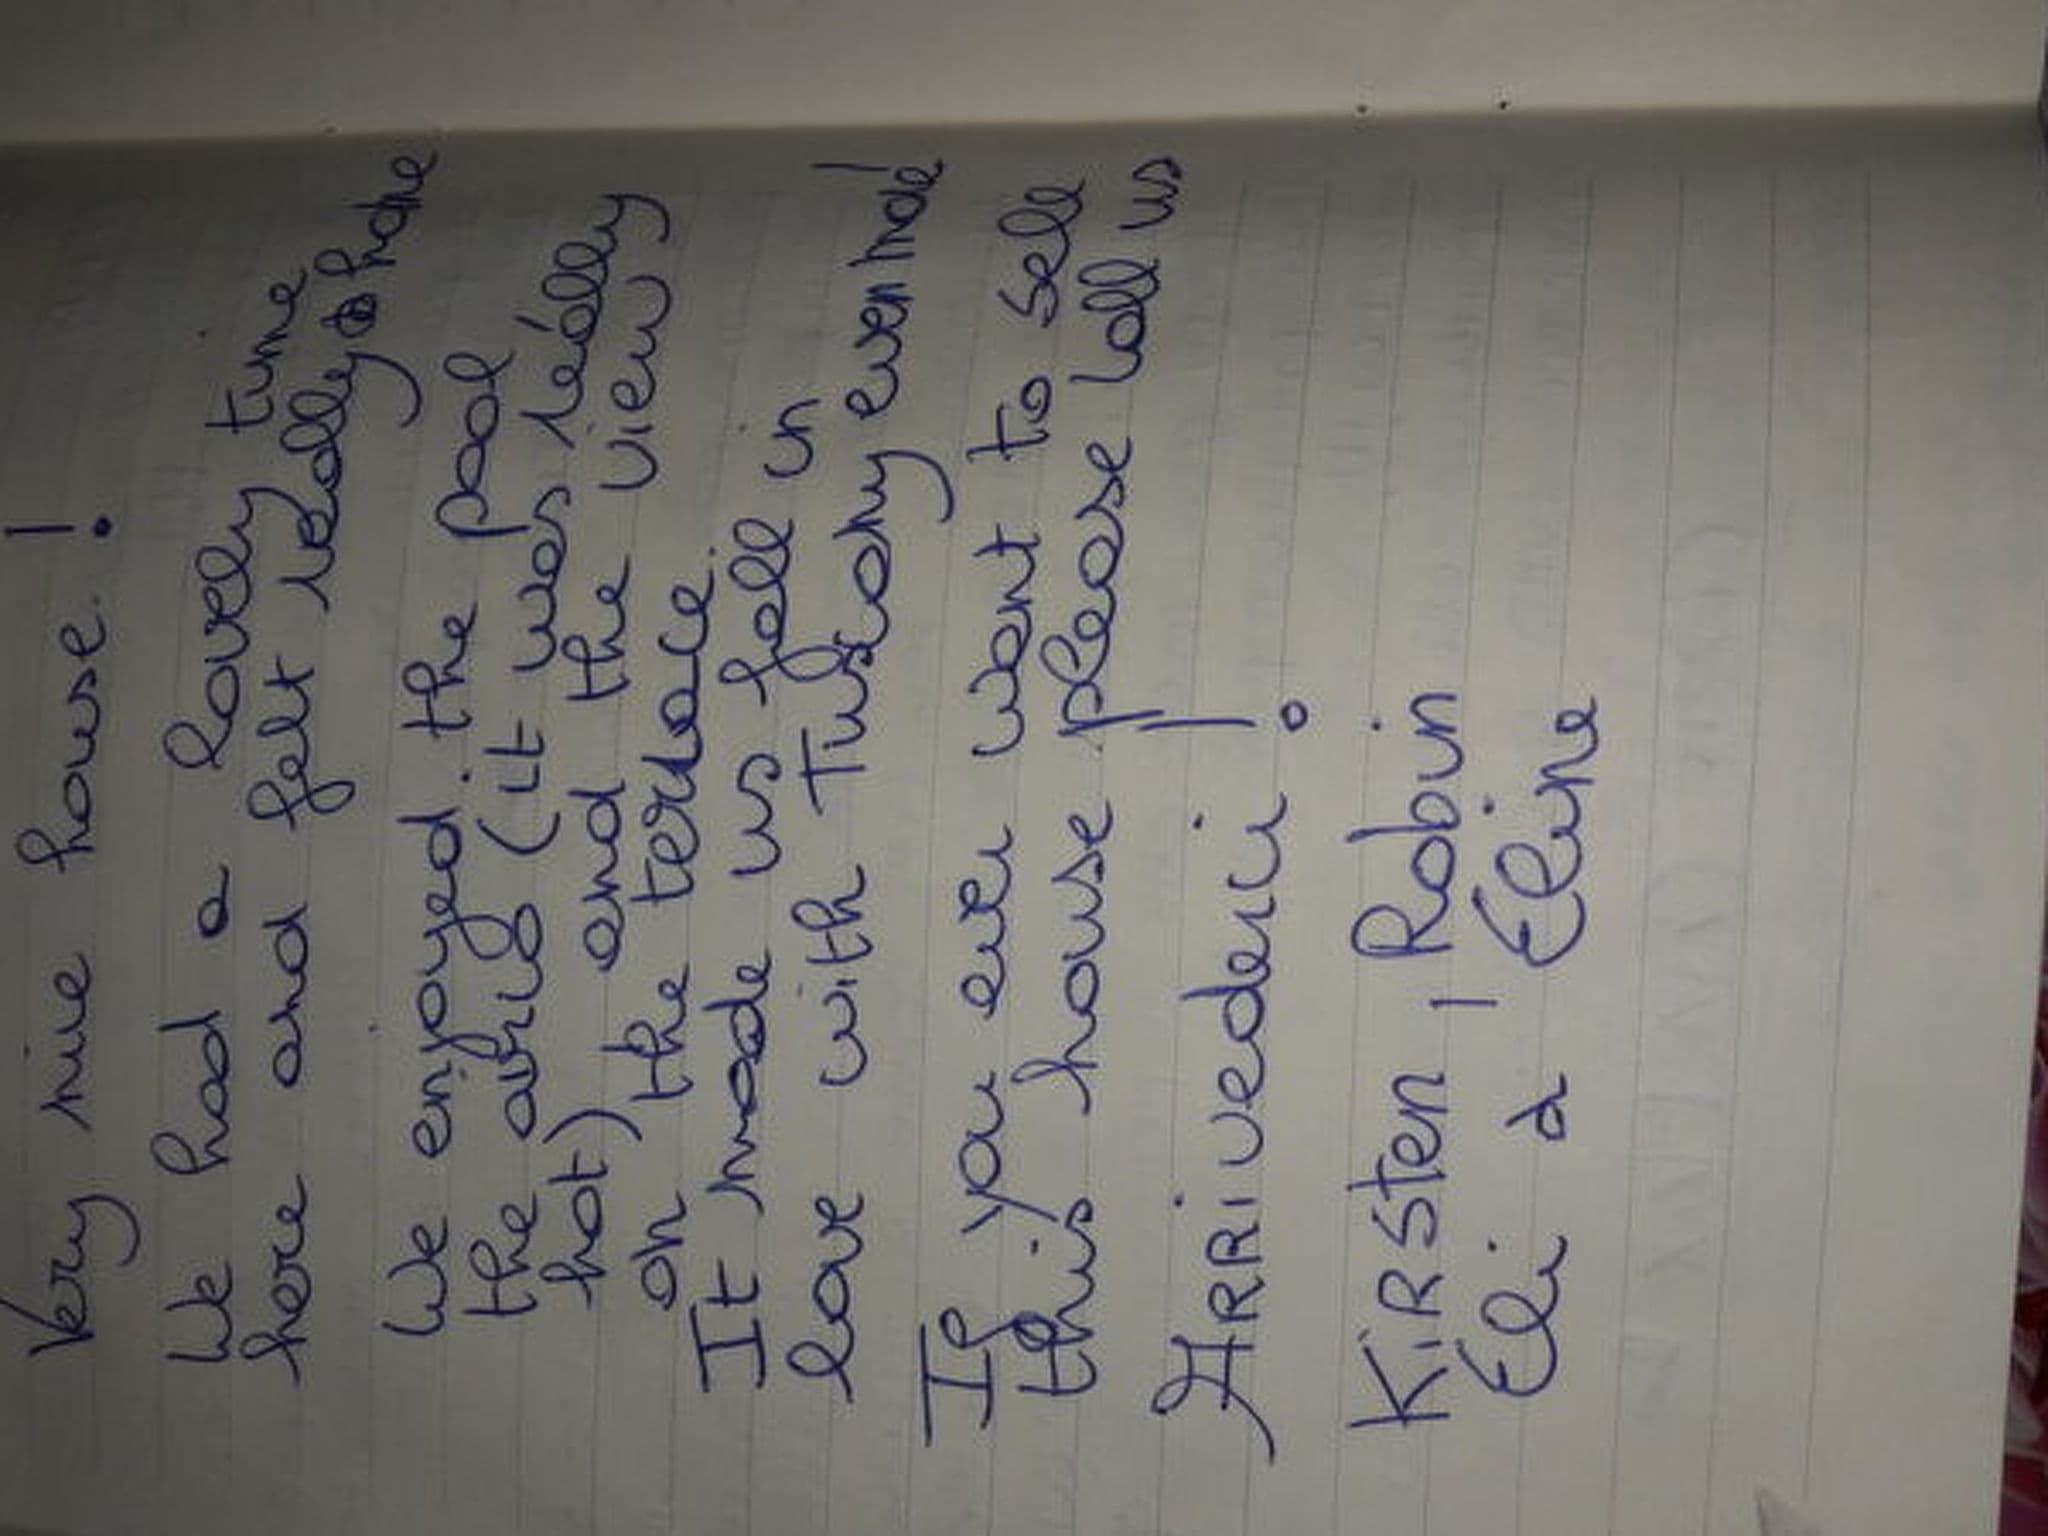 Very nice house!
We had a lovely time
here and felt really @ home
We enjoyed the pool
the airco (it was really
hot) and the view
on the terrace.
It made us fall in
love with Tuscany even more!
If you ever want to sell
this house please call us
ARRivederci!
KiRSten, Robin
Eli & Eline